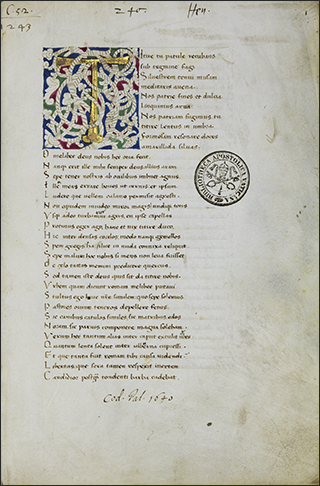 C52. 245 Hen
243
T Itire tu patule recubans
sub tegmine fagi
Siluestrem tenui musam
meditaris auena
Nos patrie fines et dulcia
Linquimus arua
Nos patriam fugimus tu
titire lentus in umbra
Formosam resonare doces
amarillida siluas
O melibee deus nobis hec otia fecit
Nanque erit ille mihi semper deus illius aram
Sepe tener nostris ab ouilibus imbuet agnus
Ille meas errare boues ut cernis et ipsum
Ludere que uellem calamo permisit agresti
Non equidem inuideo miror magis undique totis
Vsque adeo turbamur agris en ipse capellas
Protinus eger ago hanc et uix titire duco
Hic inter densas corylos modo nanque gemellos
Spem gregis ha silice in nuda connixa reliquit
Sepe malum hoc nobis si mens non leua fuisset
De celo tactas memini predicere quercus
Sed tamen iste deus qui sit da titire nobis
Vrbem quam dicunt romam melibee putaui
Stultus ego huic nostre similem quo sepe solemus
Pastores ouium teneros depellere fetus
Sic canibus catulos similes sic matribus edos
Noram sic paruis componere magna solebam
Verum hec tantum alias inter caput extulit urbes
Quantum lenta solent inter uiburna cupressi
Et que tanta fuit romam tibi causa uidendi
Libertas que sera tamen respexit inertem
Candidior postquam tondenti barba cadebat
Cod. Pal. 1640